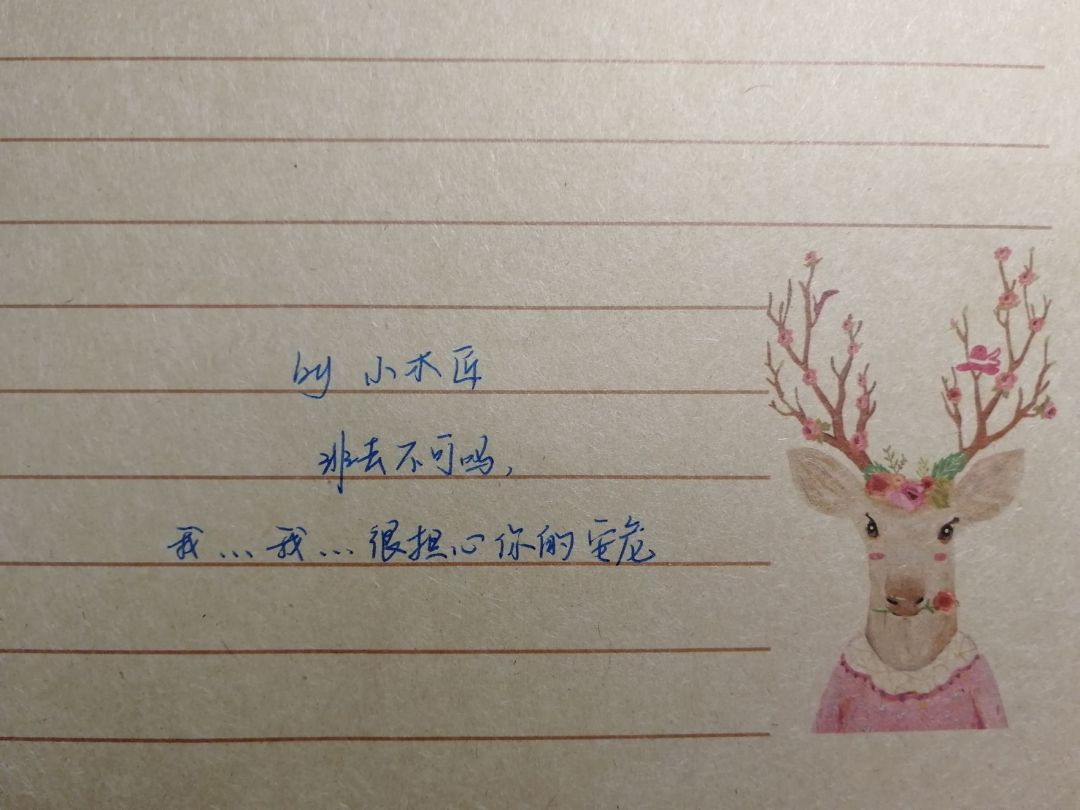 by 小木匠
非去不可吗,
我...我...很担心你的安危